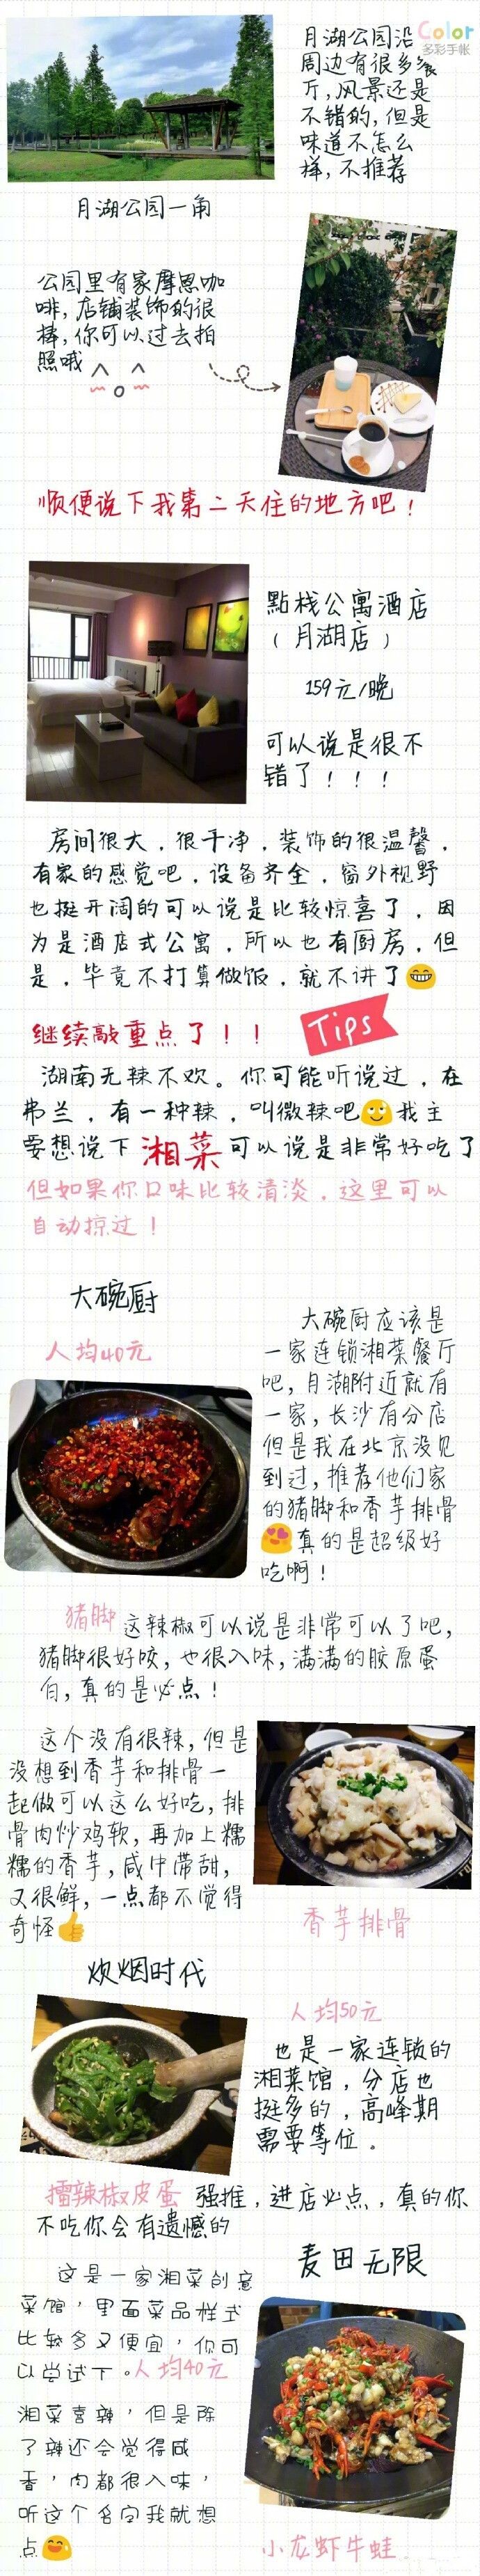 Color
多彩手帐
月湖公园沿
周边有很多餐
厅,风景还是
不错的,但是
味道不怎么
样,不推荐
月湖公园一角
公园里有家摩恩咖
啡,店铺装饰的很
棒,你可以过去拍
照哦
顺便说下我第二天住的地方吧!
點栈公寓酒店
(月湖店)
159元/晚
可以说是很不
错了!!!
房间很大,很干净,装饰的很温馨,
有家的感觉吧,设备齐全,窗外视野
也挺开阔的可以说是比较惊喜了,因
为是酒店式公寓,所以也有厨房,但
是,毕竟不打算做饭,就不讲了😁
继续敲重点了!!
Tips
湖南无辣不欢。你可能听说过,在
弗兰,有一种辣,叫微辣吧🙄我主
要想说下湘菜可以说是非常好吃了
但如果你口味比较清淡,这里可以
自动掠过!
大碗厨
人均40元
大碗厨应该是
一家连锁湘菜餐厅
吧,月湖附近就有
一家,长沙有分店
但是我在北京没见
到过,推荐他们家
的猪脚和香芋排骨
😍真的是超级好
吃啊!
猪脚 这辣椒可以说是非常可以了吧,
猪脚很好咬,也很入味,满满的胶原蛋
白,真的是必点!
这个没有很辣,但是
没想到香芋和排骨一
起做可以这么好吃,排
骨肉炒鸡软,再加上糯
糯的香芋,咸中带甜,
又很鲜,一点都不觉得
奇怪👍
香芋排骨
炊烟时代
人均50元
也是一家连锁的
湘菜馆,分店也
挺多的,高峰期
需要等位。
擂辣椒皮蛋 强推,进店必点,真的你
不吃你会有遗憾的
麦田无限
这是一家湘菜创意
菜馆,里面菜品样式
比较多又便宜,你可
以尝试下。人均40元
湘菜喜辣,但是除
了辣还会觉得咸
香,肉都很入味,
听这个名字我就想
点😅
小龙虾牛蛙